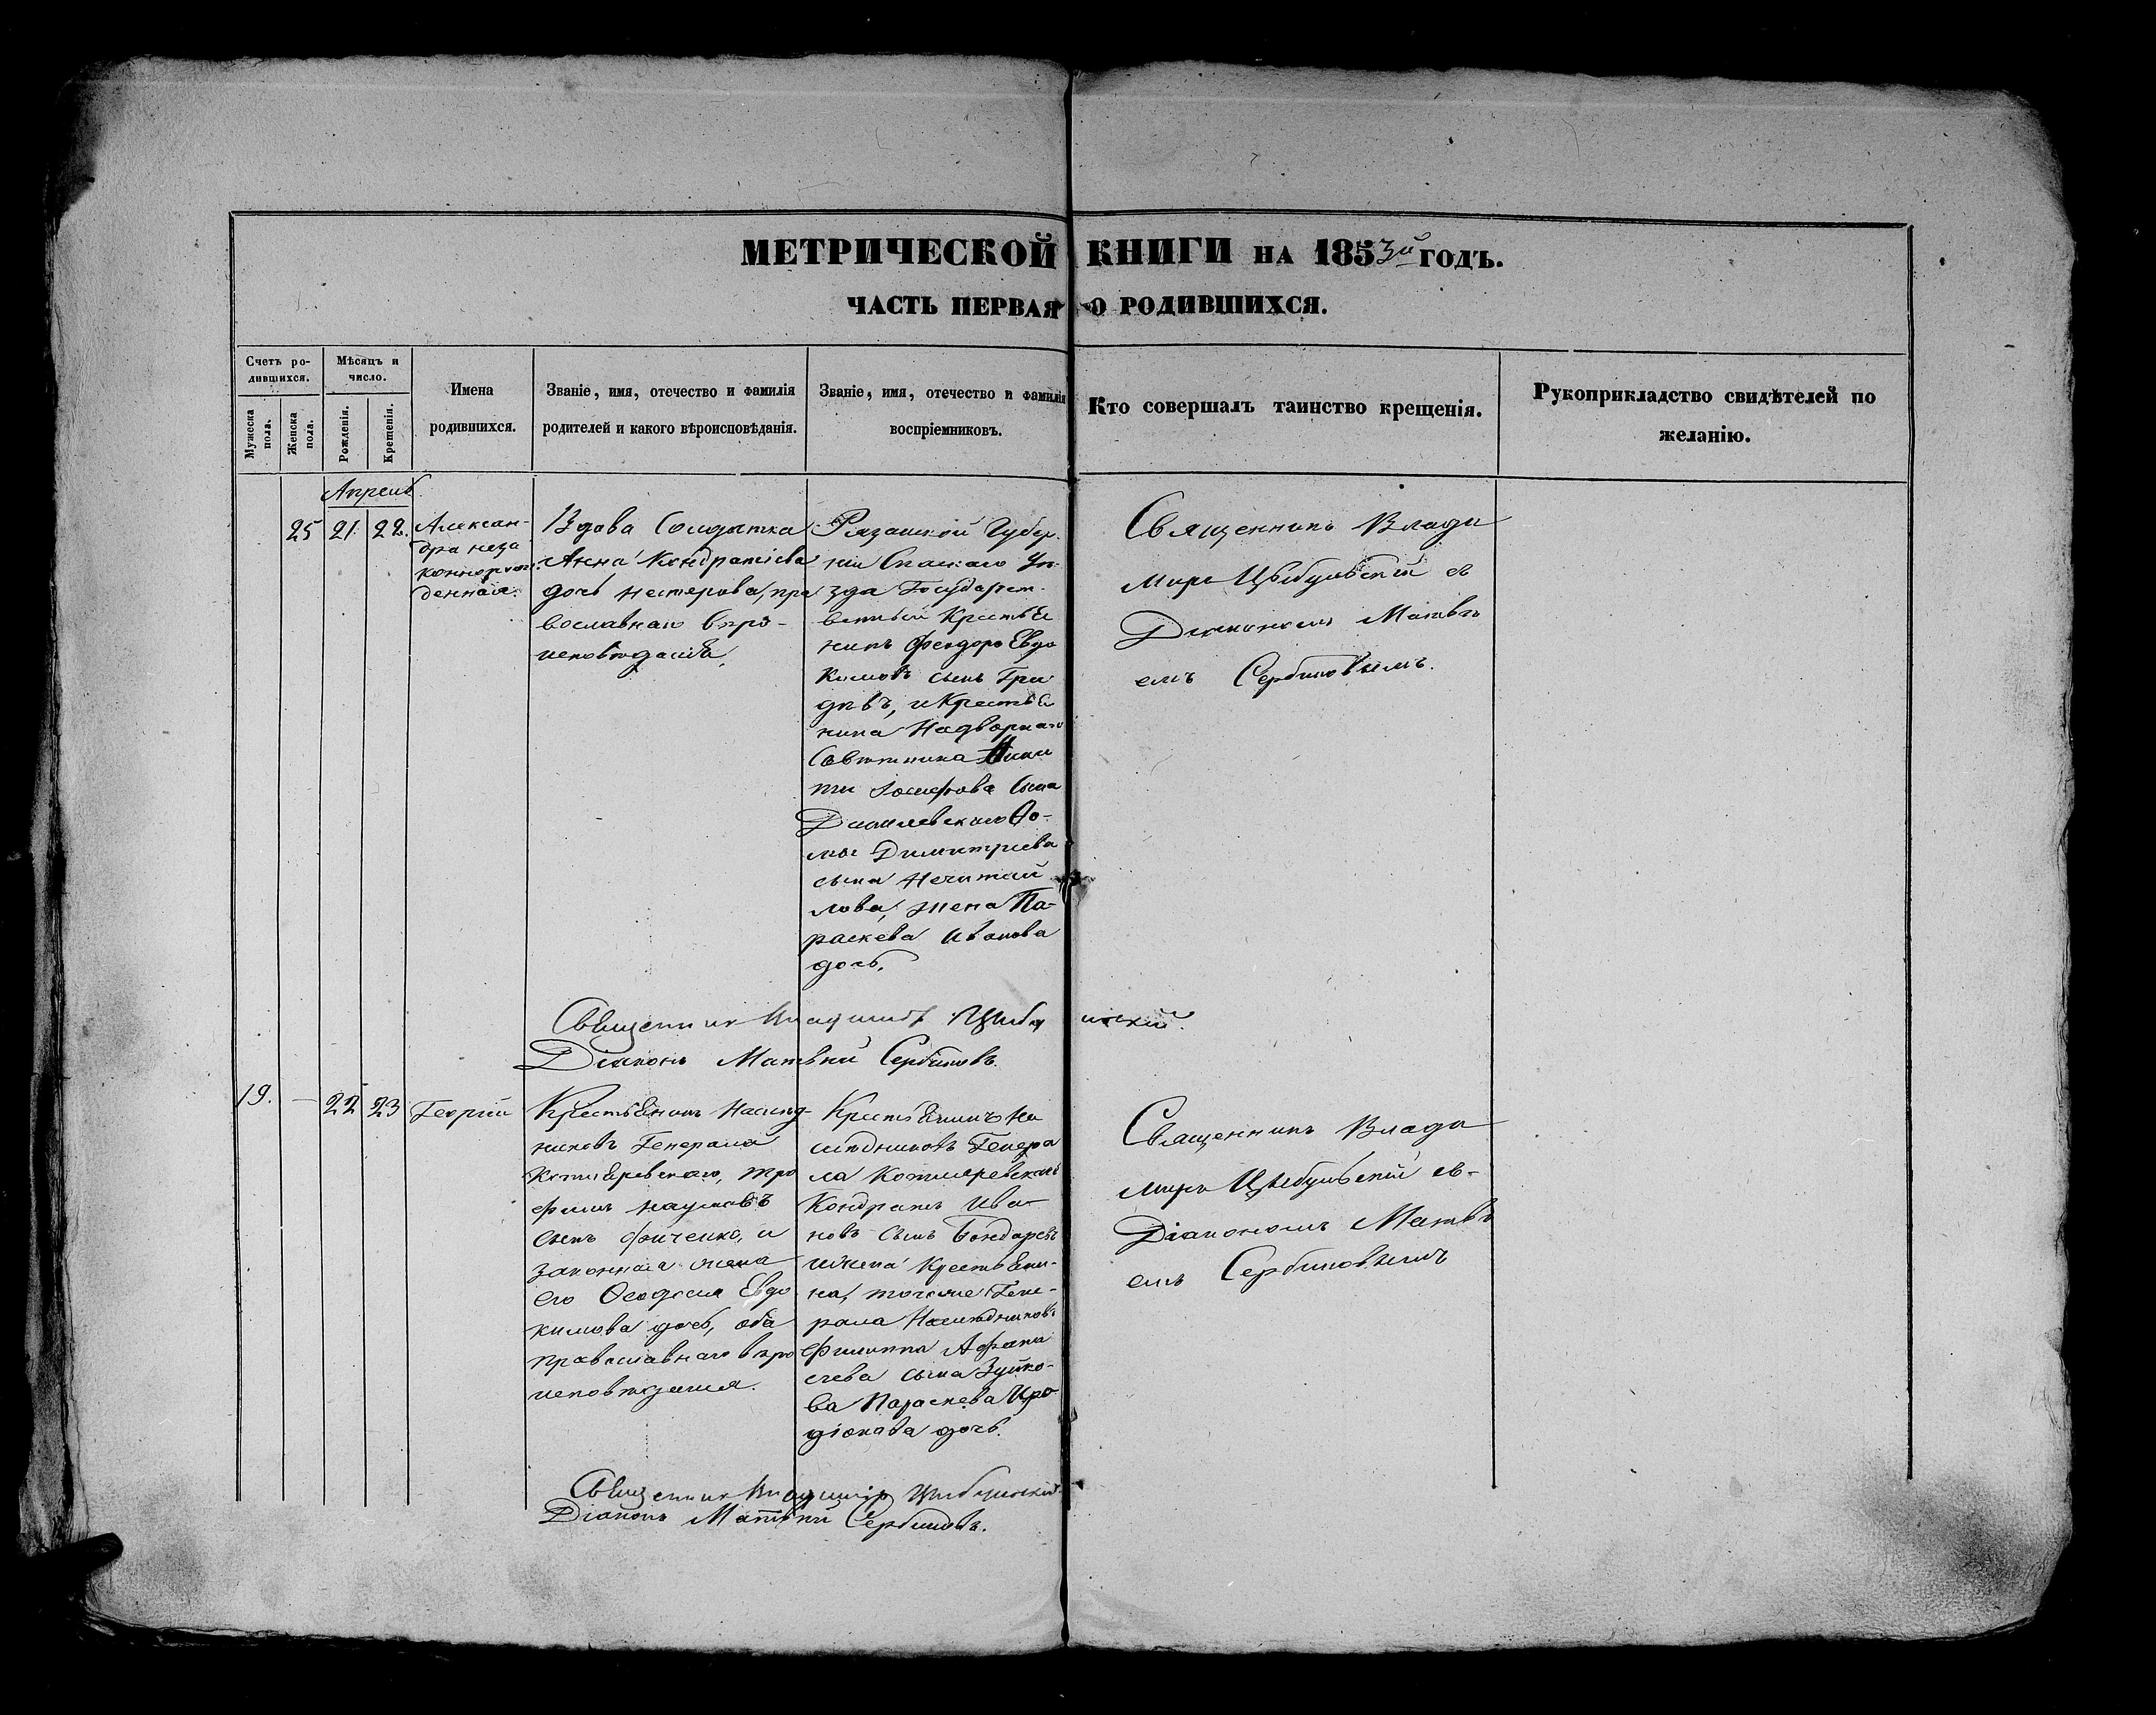 МЕТРИЧЕСКОЙ КНИГИ НА 1853й ГОДЪ.
ЧАСТЬ ПЕРВАЯ О РОДИВШИХСЯ.
Счетъ ро-
дившихся.
Мужеска
пола.
Женска
пола.
Мѣсяцъ и
число.
Рожденія.
Крещенія.
Имена
родившихся.
Званіе, имя, отечество и фамилія
родителей и какого вѣроисповѣданія.
Званіе, имя, отечество и фамилія
воспріемниковъ.
Кто совершалъ таинство крещенія.
Рукоприкладство свидѣтелей по
желанію.
Апрель
25 21 22.
Алексан-
дра неза
коннорож
денная.
Вдова Солдатка
Анна Кондратіева
дочь Нестерова, пра
вославнаго вѣро-
исповѣданія,
Рязанской Губер-
ніи Спаскаго Уѣ-
зда Государст-
венный Крестья
нинъ Феодоръ Евдо
кимовъ сынъ Гри
днвъ, и Крестья
нина Надворнаго
Совѣтника Ники
ты Іосифова сына
Ѳо-
мы Димитріева
сына Нечитай
лова, жена Па-
раскева Иванова
дочь.
Священникъ Влади
миръ Цыбульскій съ
Діакономъ Матвѣ
емъ Сербиновымъ.
Священник Владимир Цыбульский.
Діаконъ Матвѣй Сербиновъ.
19. — 22 23
Георгій
Крестьянинъ Наслѣд-
никовъ Генерала
Котляревскаго, Тро
фимъ Наумовъ
сынъ Фиченко, и
законная жена
его Ѳеодосия Евдо
кимова дочь, оба
православнаго вѣро
исповѣдания.
Крестьянинъ На
слѣдниковъ Генера
ла Котляревскаго
Кондратъ Ива-
новъ сынъ Бондаревъ
и жена Крестьяни-
на, тогоже Гене-
рала Наслѣдниковъ
Филиппа Афана
сиева сына Зуйко-
ва Параскева Иро
діонова дочь.
Священникъ Влади
миръ Цыбульскій съ-
Діакономъ Матвѣ
емъ Сербиновымъ
Священник Владимір Цыбульский
Діаконъ Матвѣй Сербиновъ.